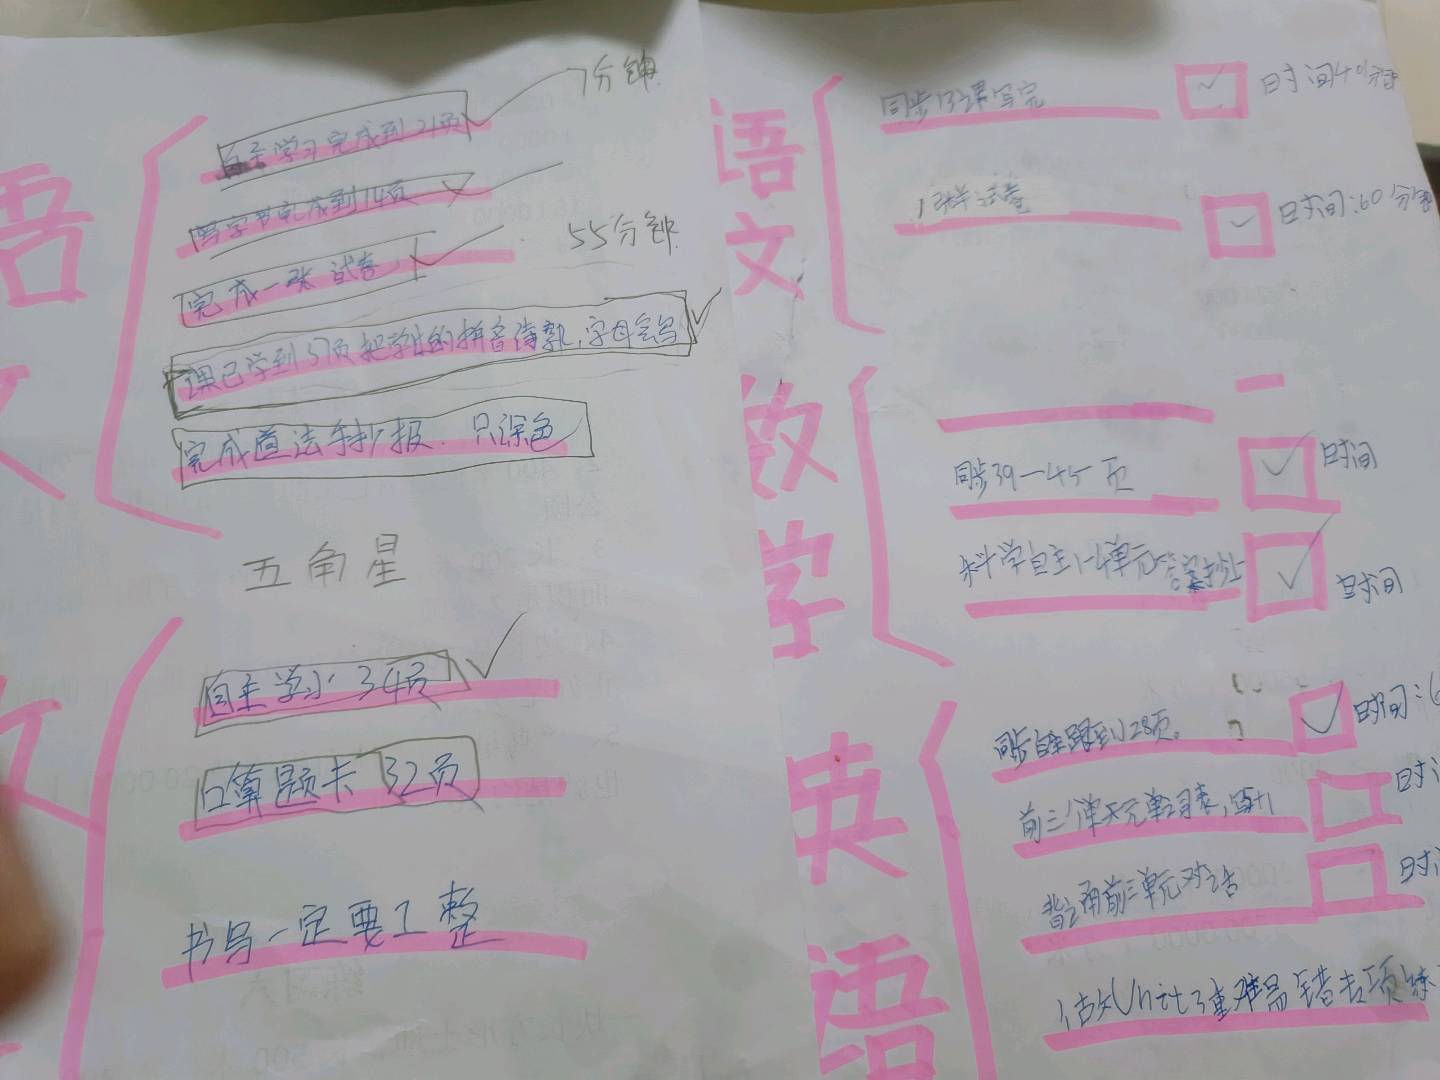 语
文
自主学习完成到21页
7分钟
写字书完成到14页
完成一张试卷
55分钟
课已学到37页把学过的拼音读熟,字母会写
完成道法手抄报.只涂色
五角星
自主学习 34页
口算题卡 32页
书写一定要工整
语文
同步13课写完
时间40分钟
1张试卷
时间:60分钟
数学
同步39—45页
时间
科学自主1-4单元答案抄上
时间
英语
同步 跟到28页。
时间:6
前三个单元单词表,
时间
背诵前三单元对话
时间
Unit3重难易错专项练